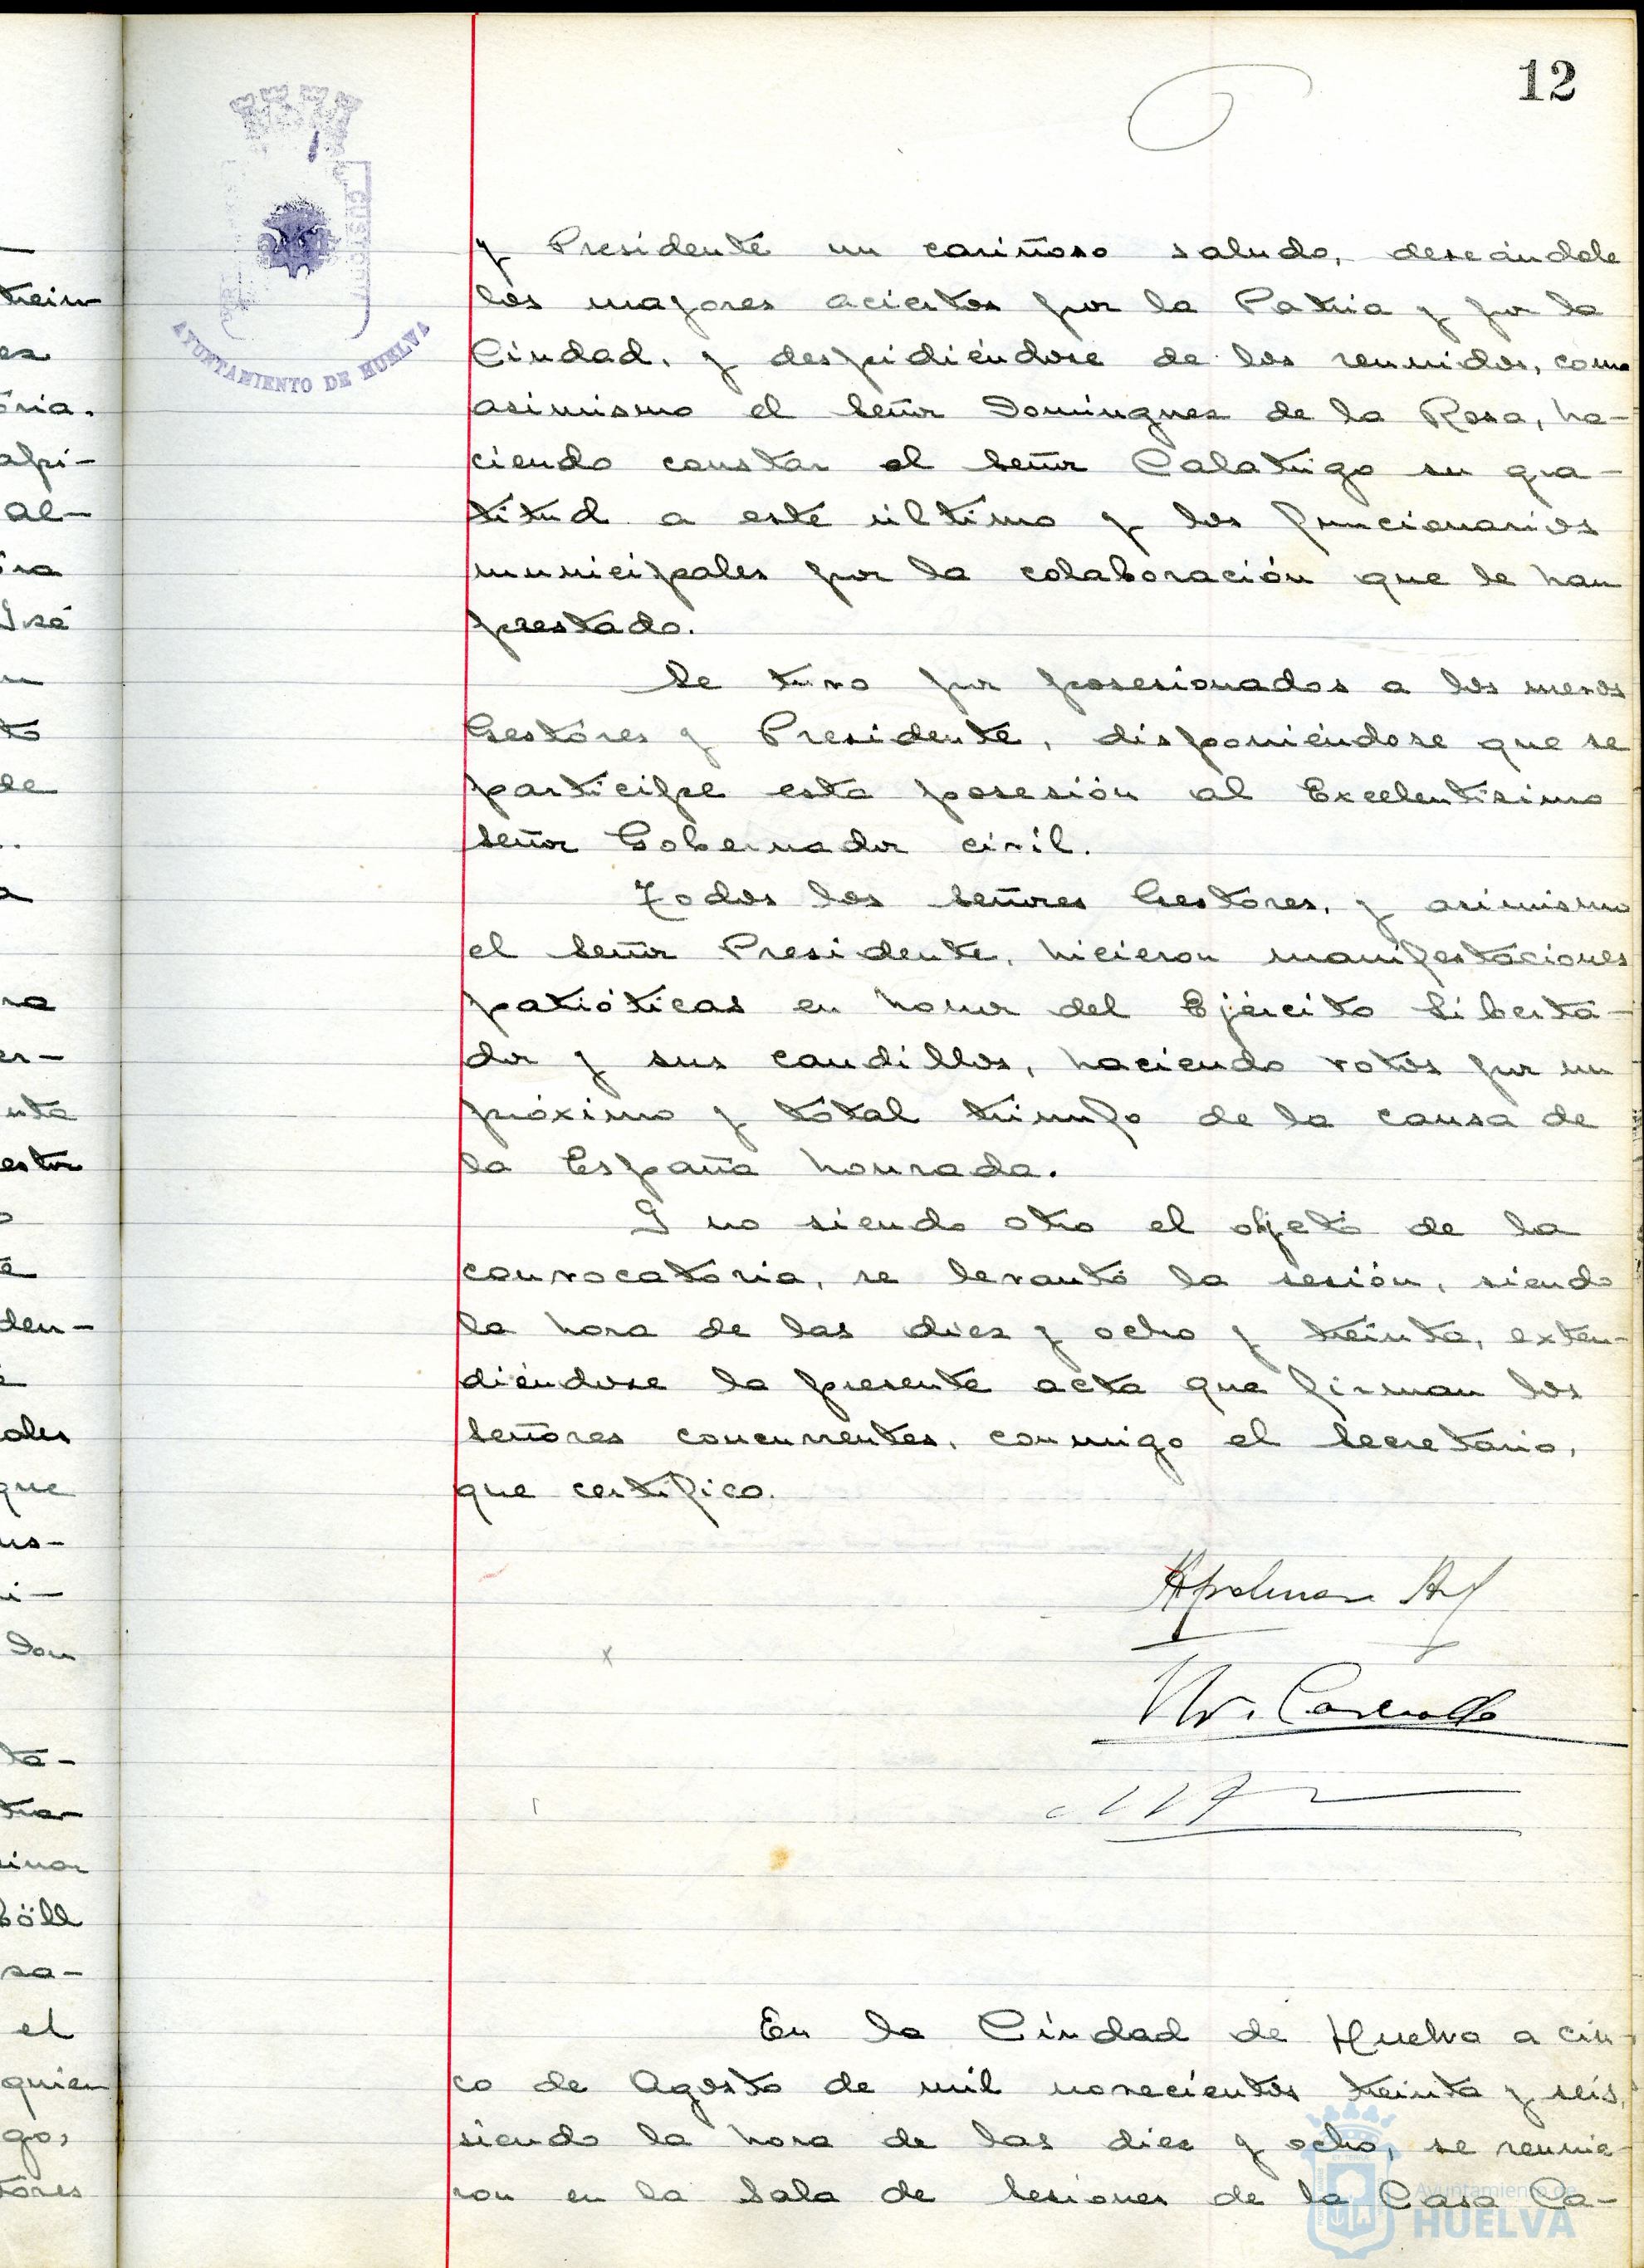 12
CUSTODIT
AYUNTAMIENTO DE HUELVA
y Presidente un cariñoso saludo, deseándole
los mayores aciertos por la Patria y por la
Ciudad, y despidiéndose de los reunidos, como
asimismo el Señor Domínguez de la Rosa, ha-
ciendo constar el Señor Calatrigo su gra-
titud a este último y los funcionarios
municipales por la colaboración que le han
prestado.
Se tuvo por posesionados a los nuevos
Gestores y Presidente, disponiéndose que se
participe esta posesión al Excelentísimo
Señor Gobernador civil.
Todos los Señores Gestores, y asimismo
el Señor Presidente, hicieron manifestaciones
patrióticas en honor del Ejército Liberta-
dor y sus caudillos, haciendo votos por un
próximo y total triunfo de la causa de
la España honrada.
Y no siendo otro el objeto de la
convocatoria, se levantó la sesión, siendo
la hora de las diez y ocho y treinta, exten-
diéndose la presente acta que firman los
Señores concurrentes, conmigo el Secretario,
que certifico.
En la Ciudad de Huelva a cin-
co de Agosto de mil novecientos treinta y seis,
siendo la hora de las diez y ocho, se reunie-
ron en la Sala de Sesiones de la Casa Ca-
Ayuntamiento de
HUELVA